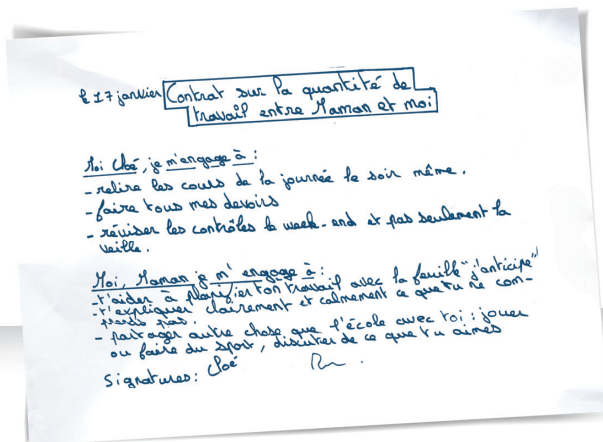 le 17 janvier Contrat sur la quantité de
travail entre Maman et moi
Moi Cloé, je m'engage à :
- relire les cours de la journée le soir même.
- faire tous mes devoirs
- réviser les contrôles le week-end et pas seulement la
veille.
Moi, Maman je m'engage à :
- t'aider à planifier ton travail avec la feuille "j'anticipe"
- t'expliquer clairement et calmement ce que tu ne com-
prends pas.
- partager autre chose que l'école avec toi : jouer
ou faire du sport, discuter de ce que tu aimes
Signatures : Cloé